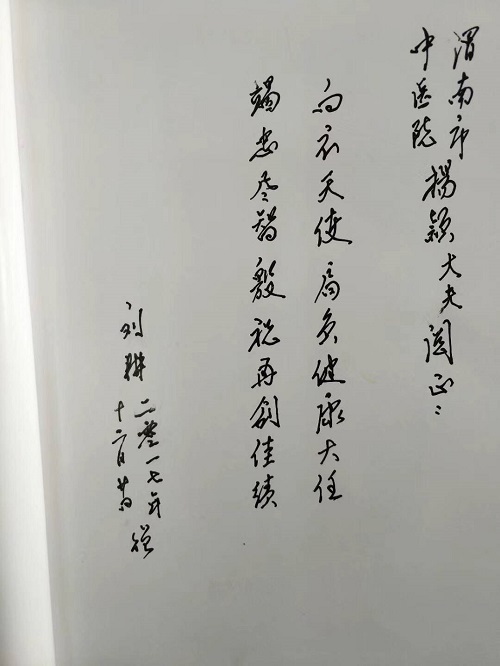 渭南市
中医院 杨颖大夫阅正:
白衣天使肩负健康大任
竭忠尽智毅祝再创佳绩
刘耕 二零一七年
十二月廿 日 赠